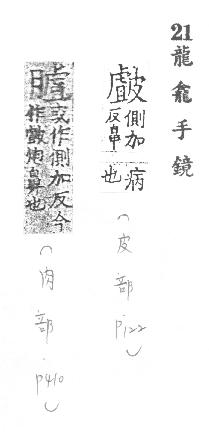 21 龍龕手鏡
皻 側加反鼻病也
(皮部 p122)
䐒 或作側加反今作皻炮鼻也
(肉部 p410)